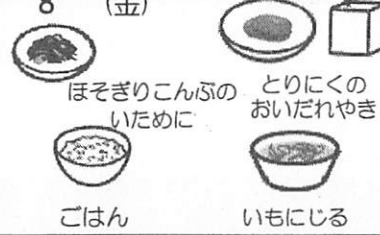 8 (金)
ほそぎりこんぶの
いために
とりにくの
おいだれやき
ごはん
いもにじる